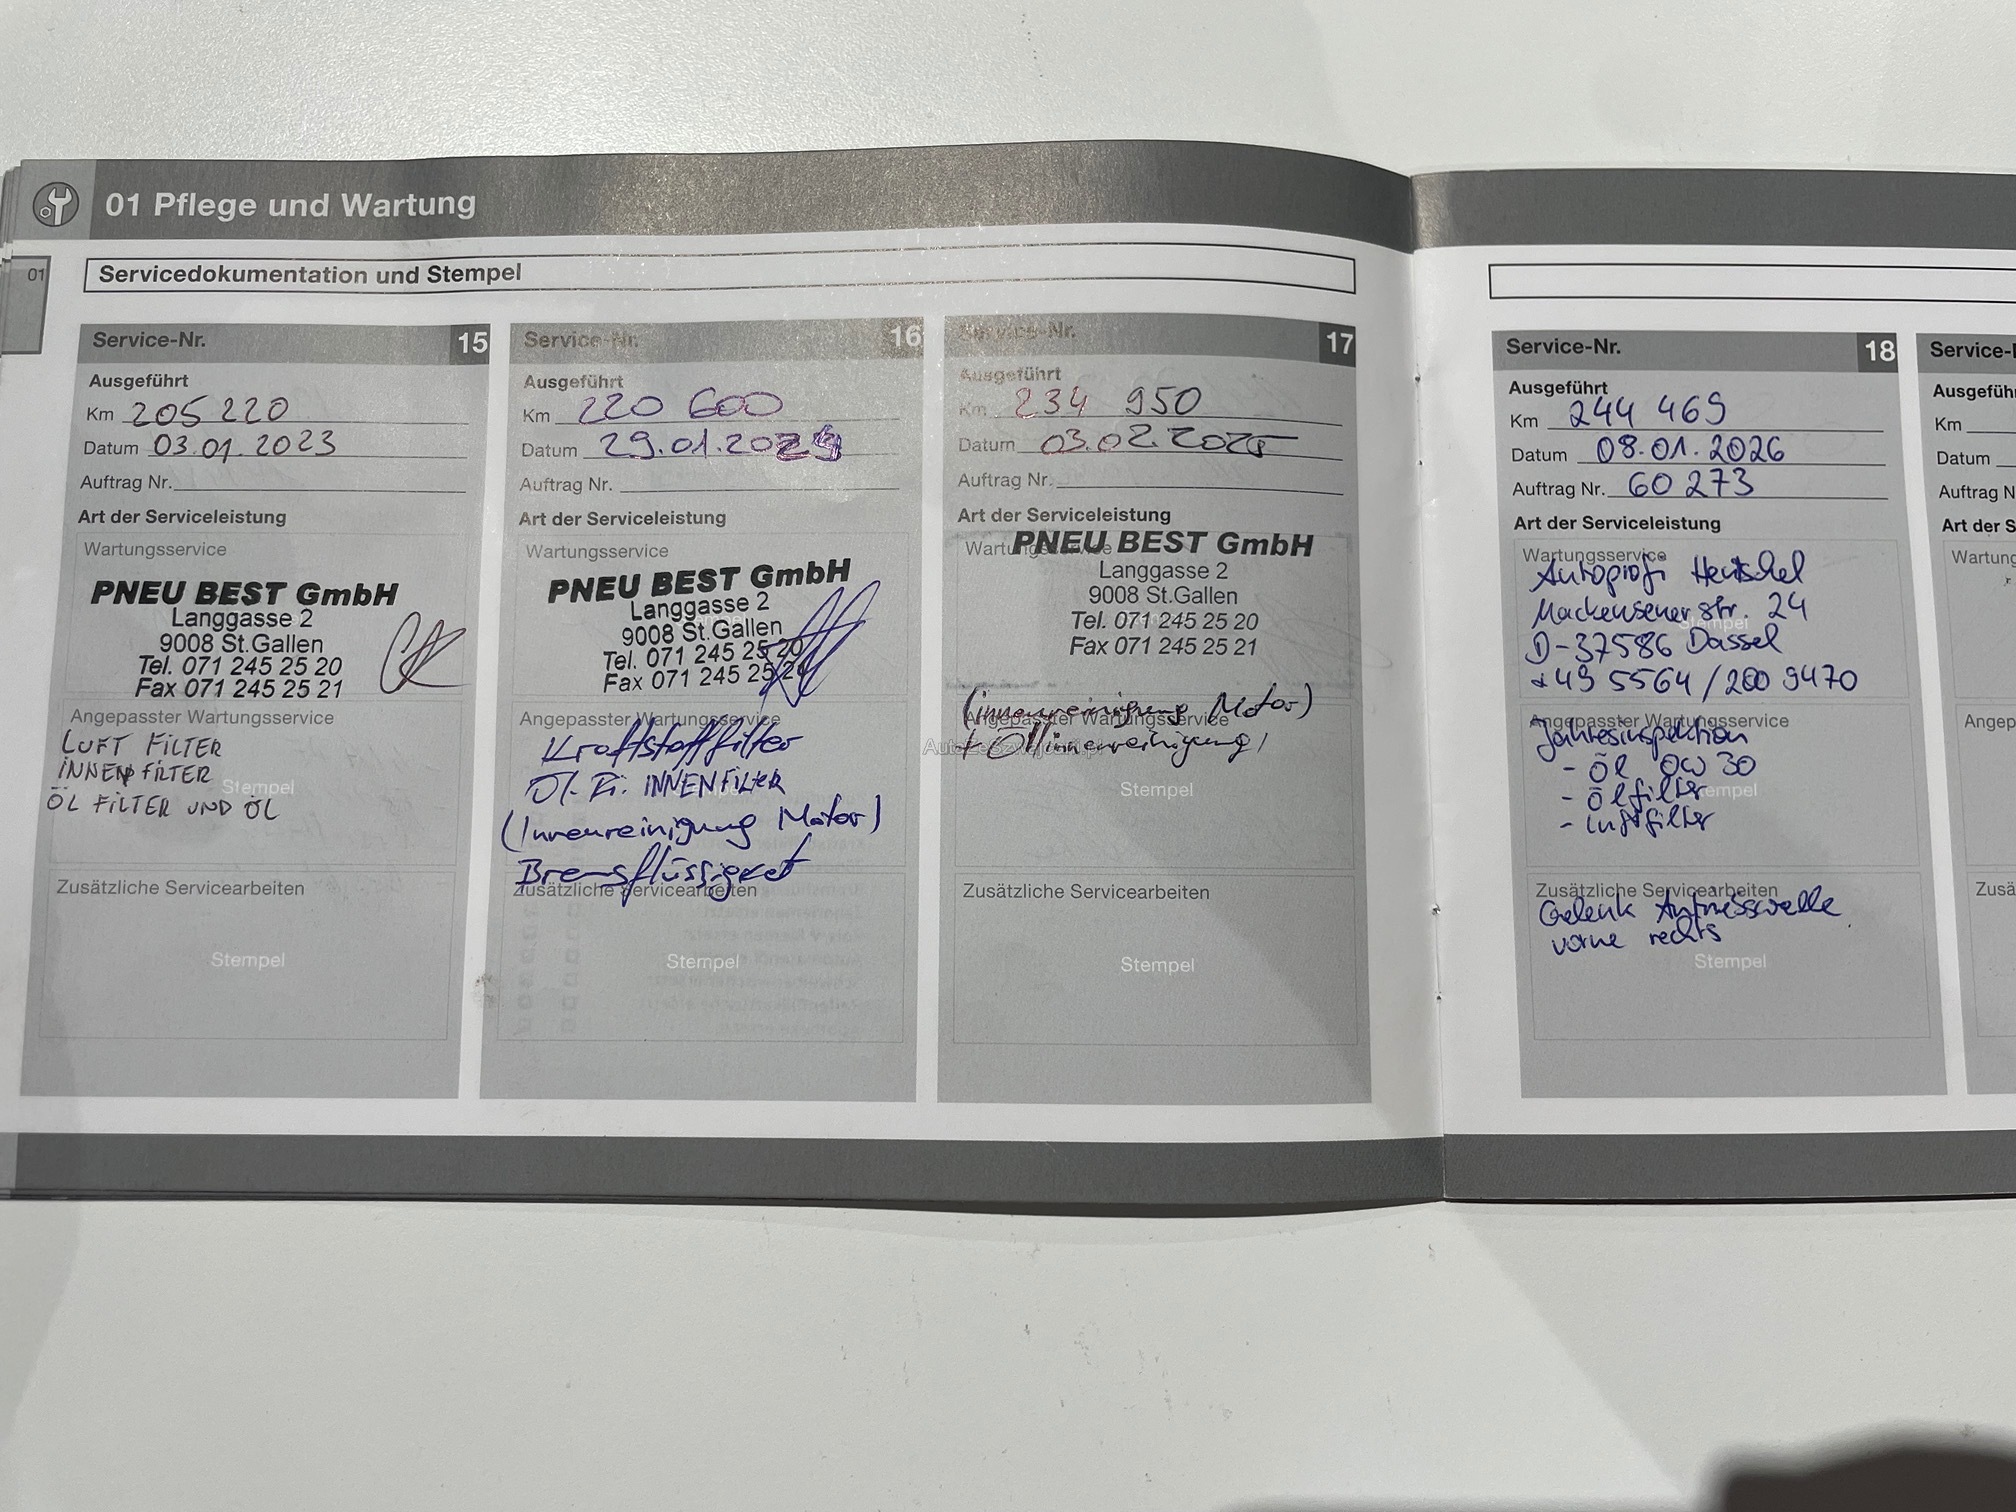 01 Pflege und Wartung
01
Servicedokumentation und Stempel
Service-Nr. 15
Ausgeführt
Km 205 220
Datum 03.01.2023
Auftrag Nr.
Art der Serviceleistung
Wartungsservice
PNEU BEST GmbH
Langgasse 2
9008 St.Gallen
Tel. 071 245 25 20
Fax 071 245 25 21
Angepasster Wartungsservice
LUFT FILTER
INNEN FILTER
Stempel
ÖL FILTER UND ÖL
Zusätzliche Servicearbeiten
Stempel
Service-Nr. 16
Ausgeführt
Km 220 600
Datum 29.01.2024
Auftrag Nr.
Art der Serviceleistung
Wartungsservice
PNEU BEST GmbH
Langgasse 2
9008 St.Gallen
Tel. 071 245 25 20
Fax 071 245 25 21
Angepasster Wartungsservice
Kraftstofffilter
Öl. Fi. INNENFILTER
Stempel
(Innenreinigung Motor)
Bremsflüssigkeit
Zusätzliche Servicearbeiten
Stempel
Service-Nr. 17
Ausgeführt
Km 234 950
Datum 03.02.2025
Auftrag Nr.
Art der Serviceleistung
Wartungsservice
PNEU BEST GmbH
Langgasse 2
9008 St.Gallen
Tel. 071 245 25 20
Fax 071 245 25 21
(innenreinigung Motor)
Angepasster Wartungsservice
+ Öl innenreinigung
Stempel
Zusätzliche Servicearbeiten
Stempel
Service-Nr. 18
Ausgeführt
Km 244 469
Datum 08.01.2026
Auftrag Nr. 60 273
Art der Serviceleistung
Wartungsservice
Autoprofi Hentschel
Mackensener str. 24
Stempel
D-37586 Dassel
+49 5564/200 9470
Angepasster Wartungsservice
Jahresinspektion
- Öl 0W 30
- Ölfilter
Stempel
- Luftfilter
Zusätzliche Servicearbeiten
Gelenk Antriebswelle
vorne rechts
Stempel
Service-
Ausgeführ
Km
Datum
Auftrag N
Art der S
Wartung
Angep
Zusä